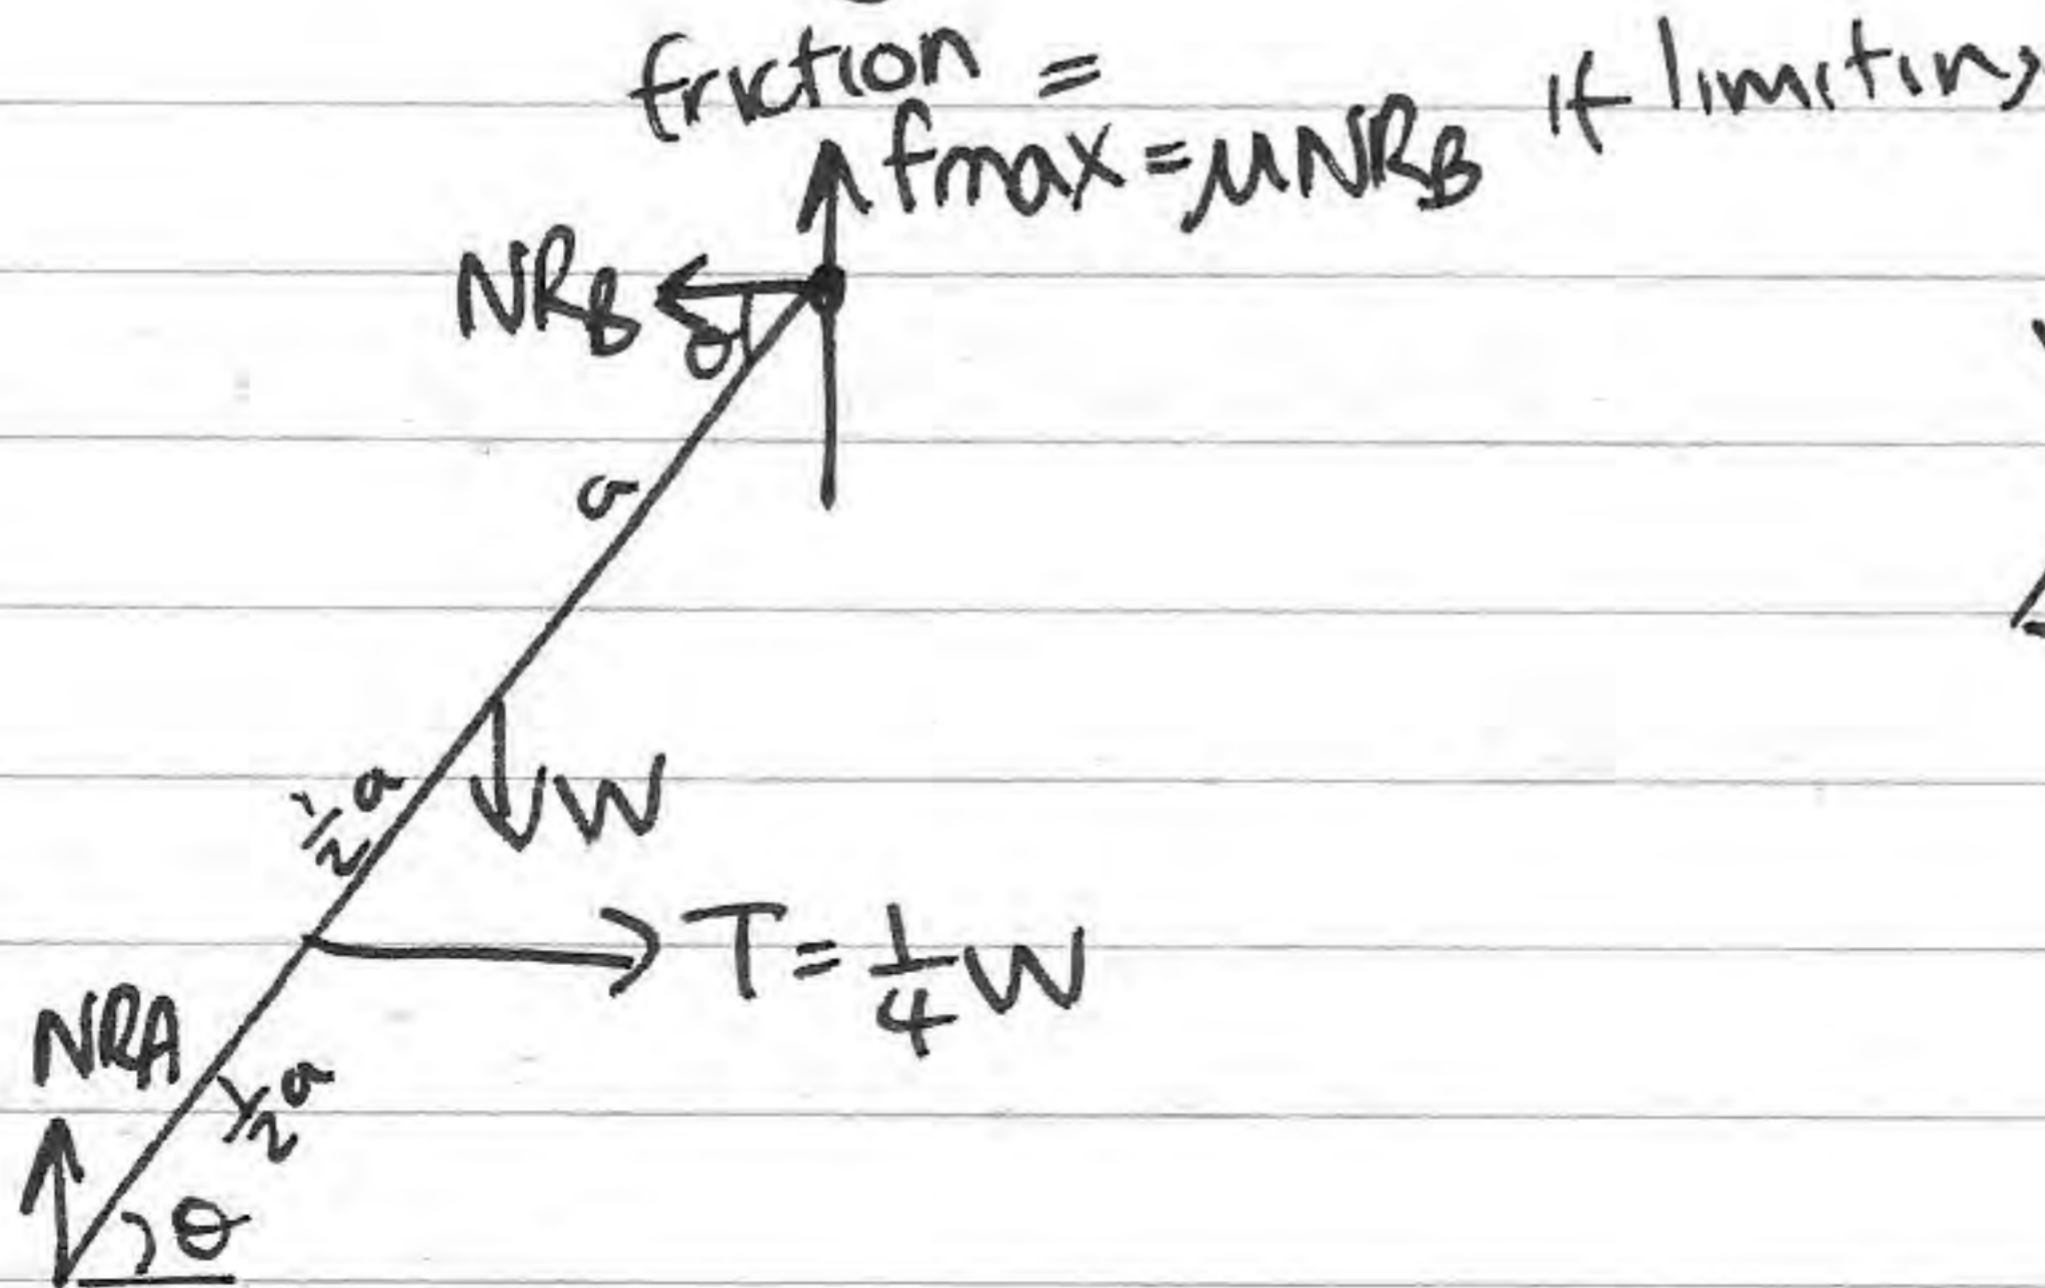 friction =
fmax = μNRB if limiting
NRB
θ
a
½a
W
T = ¼W
NRA
½a
θ